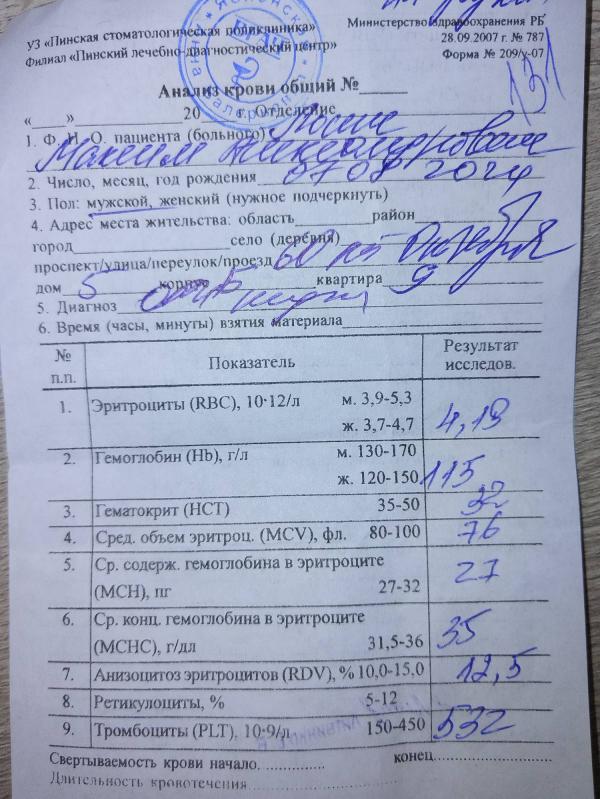 УЗ «Пинская стоматологическая поликлиника»
Филиал «Пинский лечебно-диагностический центр»
Министерство здравоохранения РБ
28.09.2007 г. № 787
Форма № 209/у-07
131
Анализ крови общий №
«___» 20 г. Отделение
1. Ф. И. О. пациента (больного)
Максим Александрович
2. Число, месяц, год рождения 07 08 2024
3. Пол: мужской, женский (нужное подчеркнуть)
4. Адрес места жительства: область район
город село (деревня)
проспект/улица/переулок/проезд 60 лет Октября
дом 5 корпус квартира 9
5. Диагноз
6. Время (часы, минуты) взятия материала
№ п.п. Показатель Результат исследов.
1. Эритроциты (RBC), 10·12/л м. 3,9-5,3
ж. 3,7-4,7 4,19
2. Гемоглобин (Hb), г/л м. 130-170
ж. 120-150 115
3. Гематокрит (НСТ) 35-50 32
4. Сред. объем эритроц. (MCV), фл. 80-100 76
5. Ср. содерж. гемоглобина в эритроците
(МСН), пг 27-32 27
6. Ср. конц. гемоглобина в эритроците
(МСНС), г/дл 31,5-36 35
7. Анизоцитоз эритроцитов (RDV), % 10,0-15,0 12,5
8. Ретикулоциты, % 5-12
9. Тромбоциты (PLT), 10·9/л 150-450 532
Свертываемость крови начало............... конец.....................
Длительность кровотечения.....................